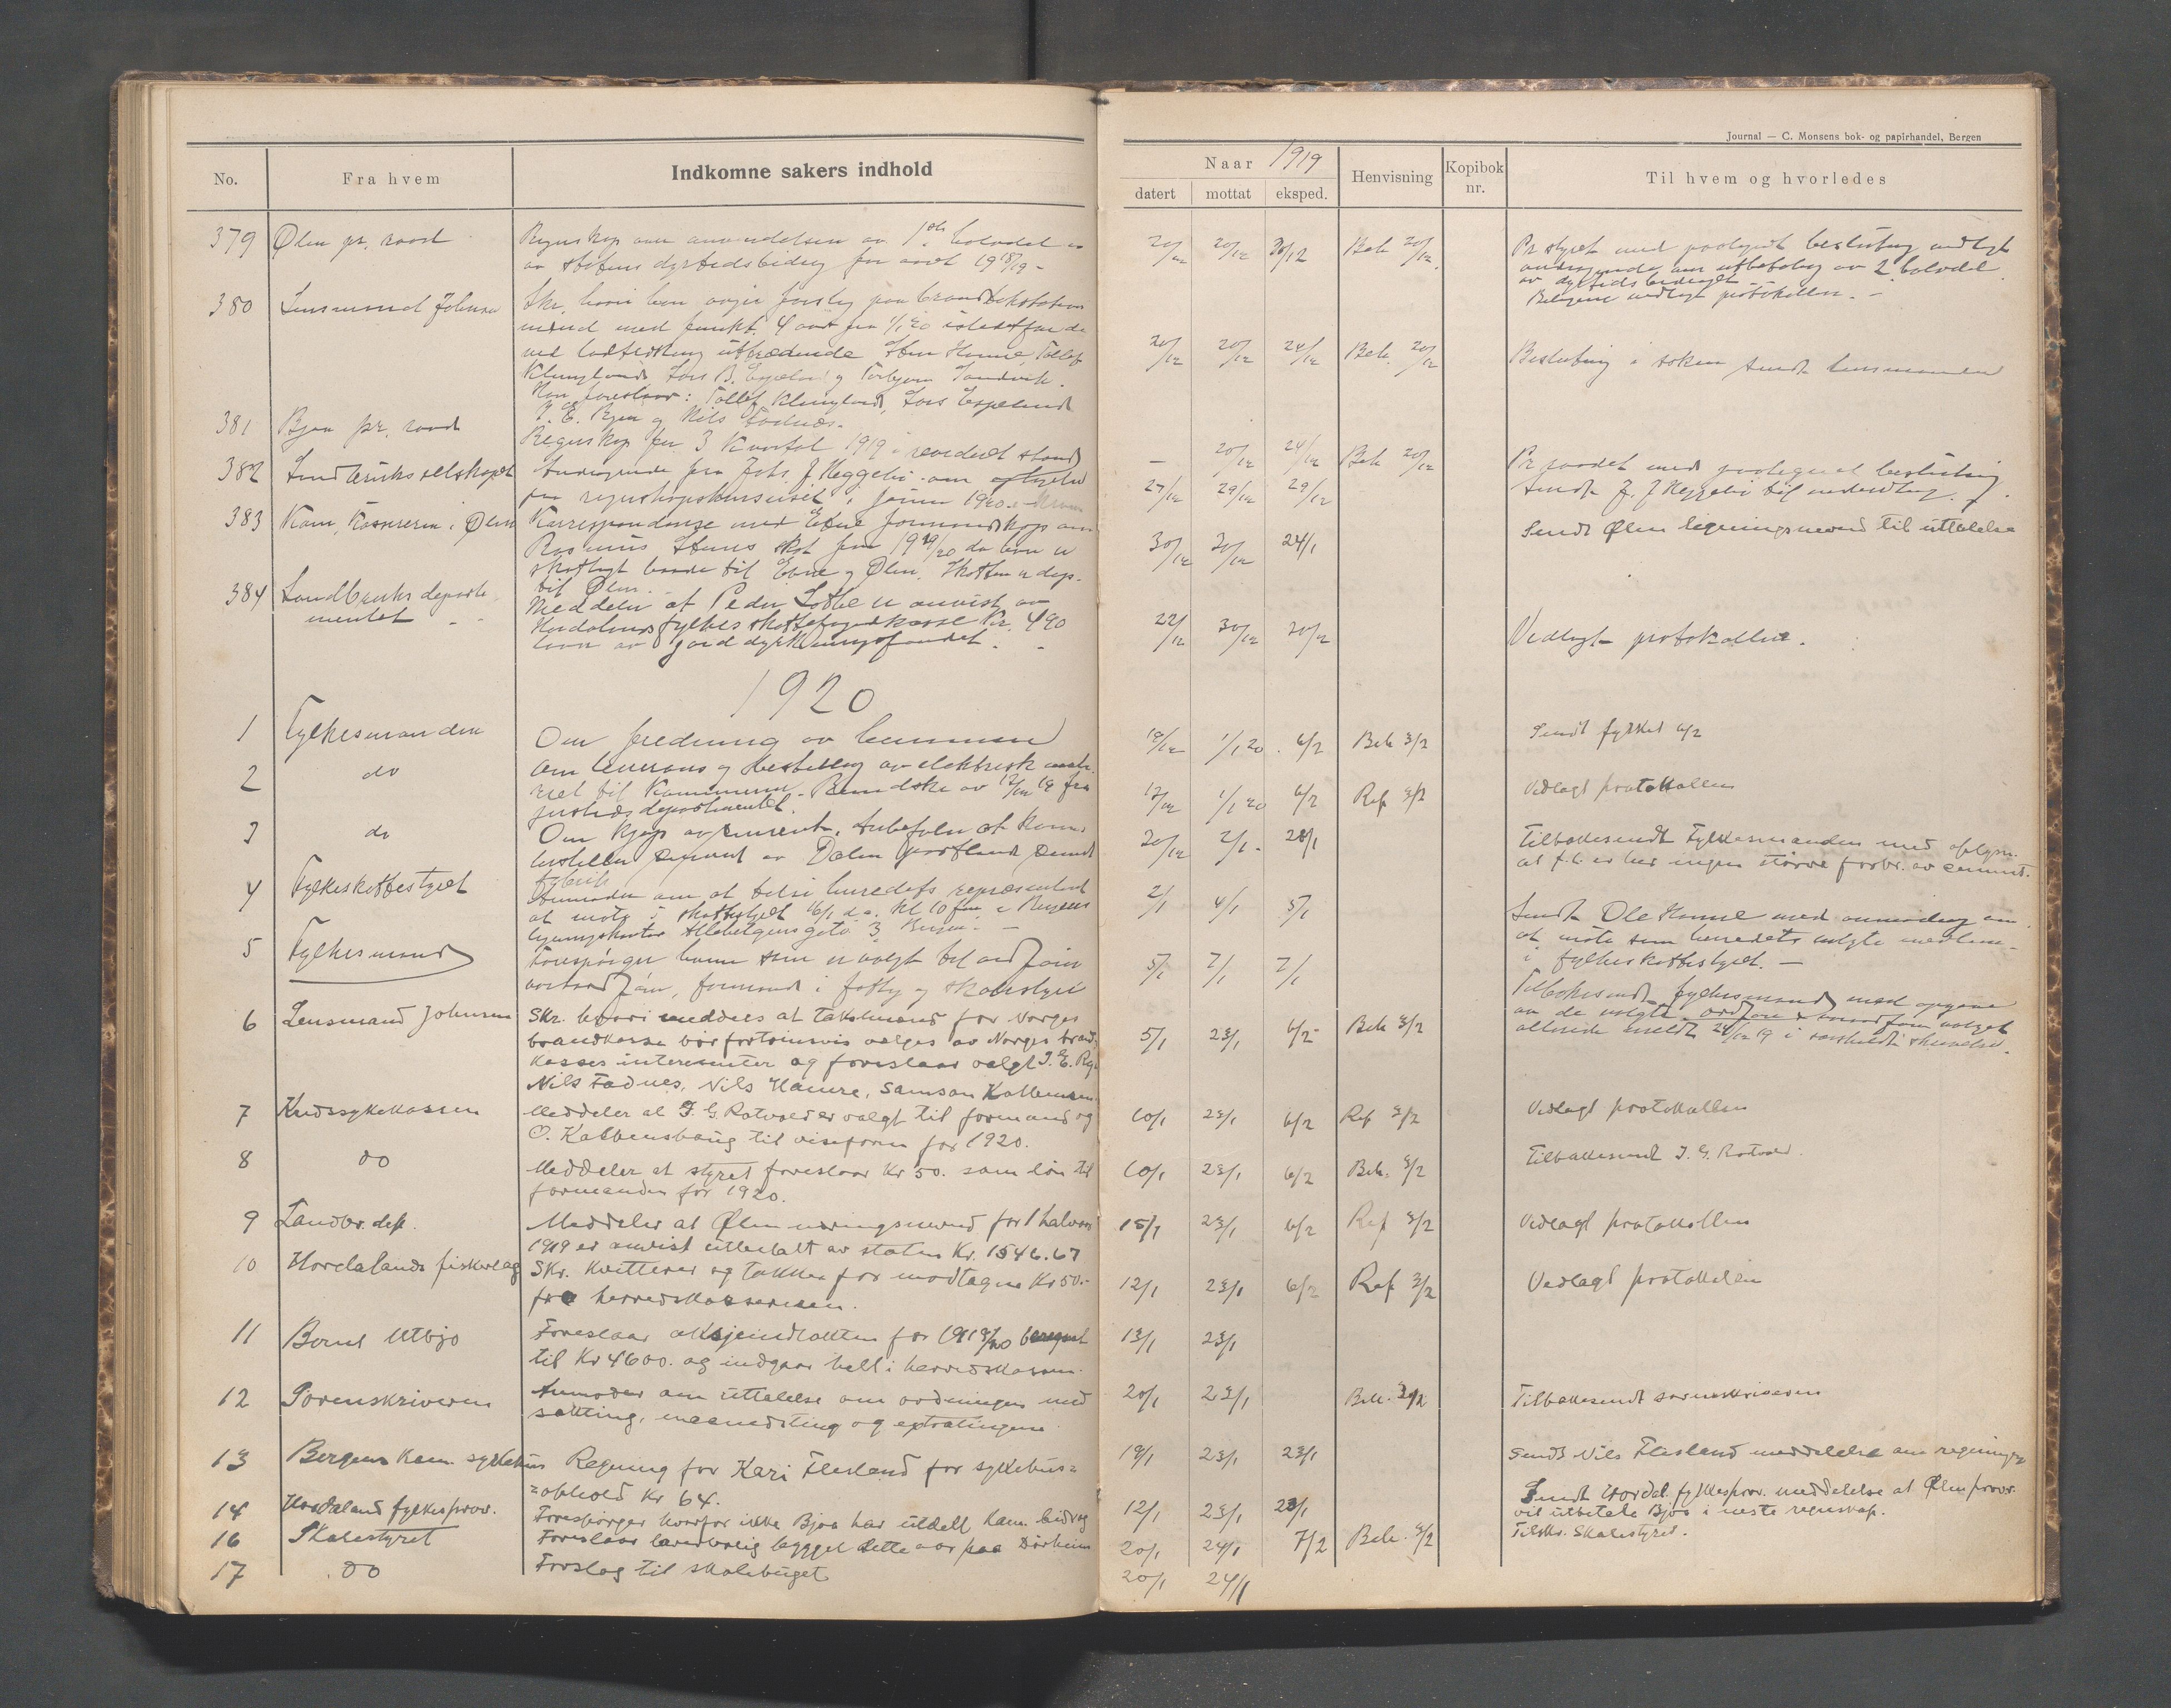 Journal — C. Monsens bok- og papirhandel, Bergen
No.
Fra hvem
Indkomne sakers indhold
Naar 1919
datert
mottat
eksped.
Henvisning
Kopibok nr.
Til hvem og hvorledes
379 Ølen pr. raad
Regnskap over anvendelsen av 1ste halvdel
av statens dyrtidsbidrag for aaret 1918/19 -
20/12 20/12 Beh 20/12
av dyrtidsbidraget
vedlagt protokollen. -
380 Lensmand Johnsen
Skr. hvori han avgir forslag paa
mænd med funkt. 4 aar fra 1/1 20 istedetfor de
ved lodtrækning uttrædende Sten Hamre, Tollef
Klungland, Lars B. Espeland og Torbjørn Sandvik.
Han foreslaar: Tollef Klungland, Lars Espeland
I. E. Rygg og Nils Fadnes.
20/12 20/12 24/12 Beh. 20/12
Beslutning i saken sendt lensmanden
381 Bjoa pr. raad
Regnskap for 3 Kvartal 1919 i revideret stand
— 20/12 24/12 Beh 20/12
Pr raadet med paategnet beslutning
382 Landbruksselskapet
Andragende fra Johs. J. Heggelid om
paa regnskapskurset i januar 1920.
27/12 29/12 29/12
Sendt J. J. Heggelid til
383 Kom. Kassereren i Ølen
Korrespondanse med Etne formandskap om
Rasmus skat for 1919/20 da han er
skatlagt baade til Etne og Ølen. Skatten
til Ølen.
30/12 30/12 24/1
Sendt Ølen ligningsnevnd til uttalelse
384 Landbruks departementet
Meddeler at Peder er anvist av
Hordalands fylkes skattefogdkasse Kr. 490
laan av jorddyrkningsfondet.
22/12 30/12 30/12
Vedlagt protokollen.
1920
1 Fylkesmanden
Om fredning av
18/12 1/1 20. 6/2 Beh 3/2
Sendt fylket 6/2
2 do
Om leverans og bestilling av elektrisk materiel
til Kommunene. Rundskr. av 12/12 19 fra
justisdepartementet.
17/12 1/1 20 6/2 Ref 3/2
Vedlagt protokollen
3 do
Om kjøp av sement. Anbefaler at
bestiller sement av Dalen portland sement
fabrik
20/12 2/1 - 28/1
Tilbakesendt Fylkesmanden med oplysn.
at f.t. er her ingen større forbr. av cement.
4 Fylkeskattestyret
Anmoder om at tilsi herredets repræsentant
at møte i skattestyret 16/1 d.a. kl 10 fm. i Bergens
ligningskontor Allehelgensgate 3 Bergen. —
2/1 4/1 5/1
Sendt Ole Hamre med anmodning om
at møte som herredets valgte medlem
i fylkesskattestyret. —
5 Fylkesmand
Forespørger hvem som er valgt til ordfører
varaordfører, formand i fattig og skolestyret
5/1 7/1 7/1
Tilbakesendt fylkesmand med opgave
over de valgte. ordfører & varaordfører valget
allerede meldt 29/12 19 i særskildt skrivelse.
6 Lensmand Johnsen
Skr. hvori meddeles at takstmænd for Norges
brandkasse bør fortrinsvis velges av Norges brand-
kasses interesenter og foreslaar valgt I. E. Rygg
Nils Fadnes, Nils Hamre, Samson
5/1 23/1 6/2 - Beh 3/2
7 Kredssykekassen
Meddeler at I. G. Rotvold er valgt til formand og
O. Kalbenshaug til viseform for 1920.
10/1 23/1 6/2 Ref 3/2
Vedlagt protokollen
8 do
Meddeler at styret foreslaar Kr 50. som løn til
formanden for 1920.
10/1 23/1 6/2 Beh. 3/2
Tilbakesendt I. G. Rotvold
9 Landbr. dep.
Meddeler at Ølen næringsnevnd for 1 halvaar
1919 er anvist utbetalt av staten Kr. 1546.67
15/1 23/1 6/2 Ref 3/2
Vedlagt protokollen
10 Hordalands fiskerlag
Skr. kvitterer og takker for modtagne Kr 50.-
fra herredskassereren.
12/1 23/1 6/2 Ref 3/2
Vedlagt protokollen
11 Bernt Utbjo
Foreslaar aktsjeindtækten for 1919/20 beregnet
til Kr 4600. og indgaar helt i herredskassen.
13/1 23/1
12 Sorenskriveren
Anmoder om uttalelse om ordningen med
sætting, maanedsting og extratingene
20/1 23/1 Beh. 3/2
Tilbakesendt sorenskriveren
13 Bergens Kom. sykehus
Regning for Kari Flesland for sykehus-
=ophold Kr 64.
19/1 23/1 23/1
Sendt Nils Flesland meddelelse om regningen
14 Hordaland fylkesprov.
Forespørger hvorfor ikke Bjoa har utdelt kom. bidrag
12/1 23/1 23/1
Sendt Hordal. fylkesprov. meddelelse at Ølen prov.
vil utbetale Bjoa i neste regnskap.
16 Skolestyret
Foreslaar lærerbolig bygget dette aar paa Dørheim
20/1 24/1 7/2 Beh. 3/2
Tilskr. Skolestyret.
17 do
Forslag til skolebuget
20/1 24/1